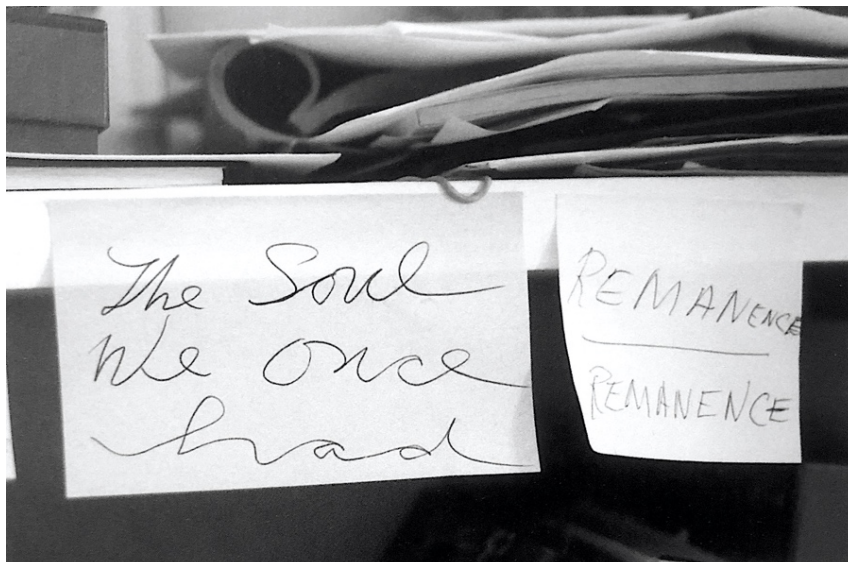 The Soul
We Once
had
REMANENCE
REMANENCE